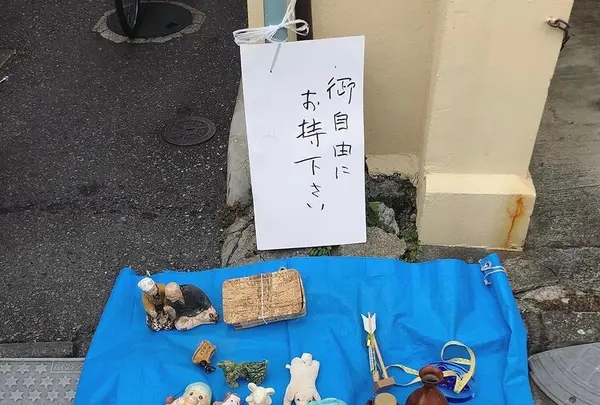 御自由に
お持下さい